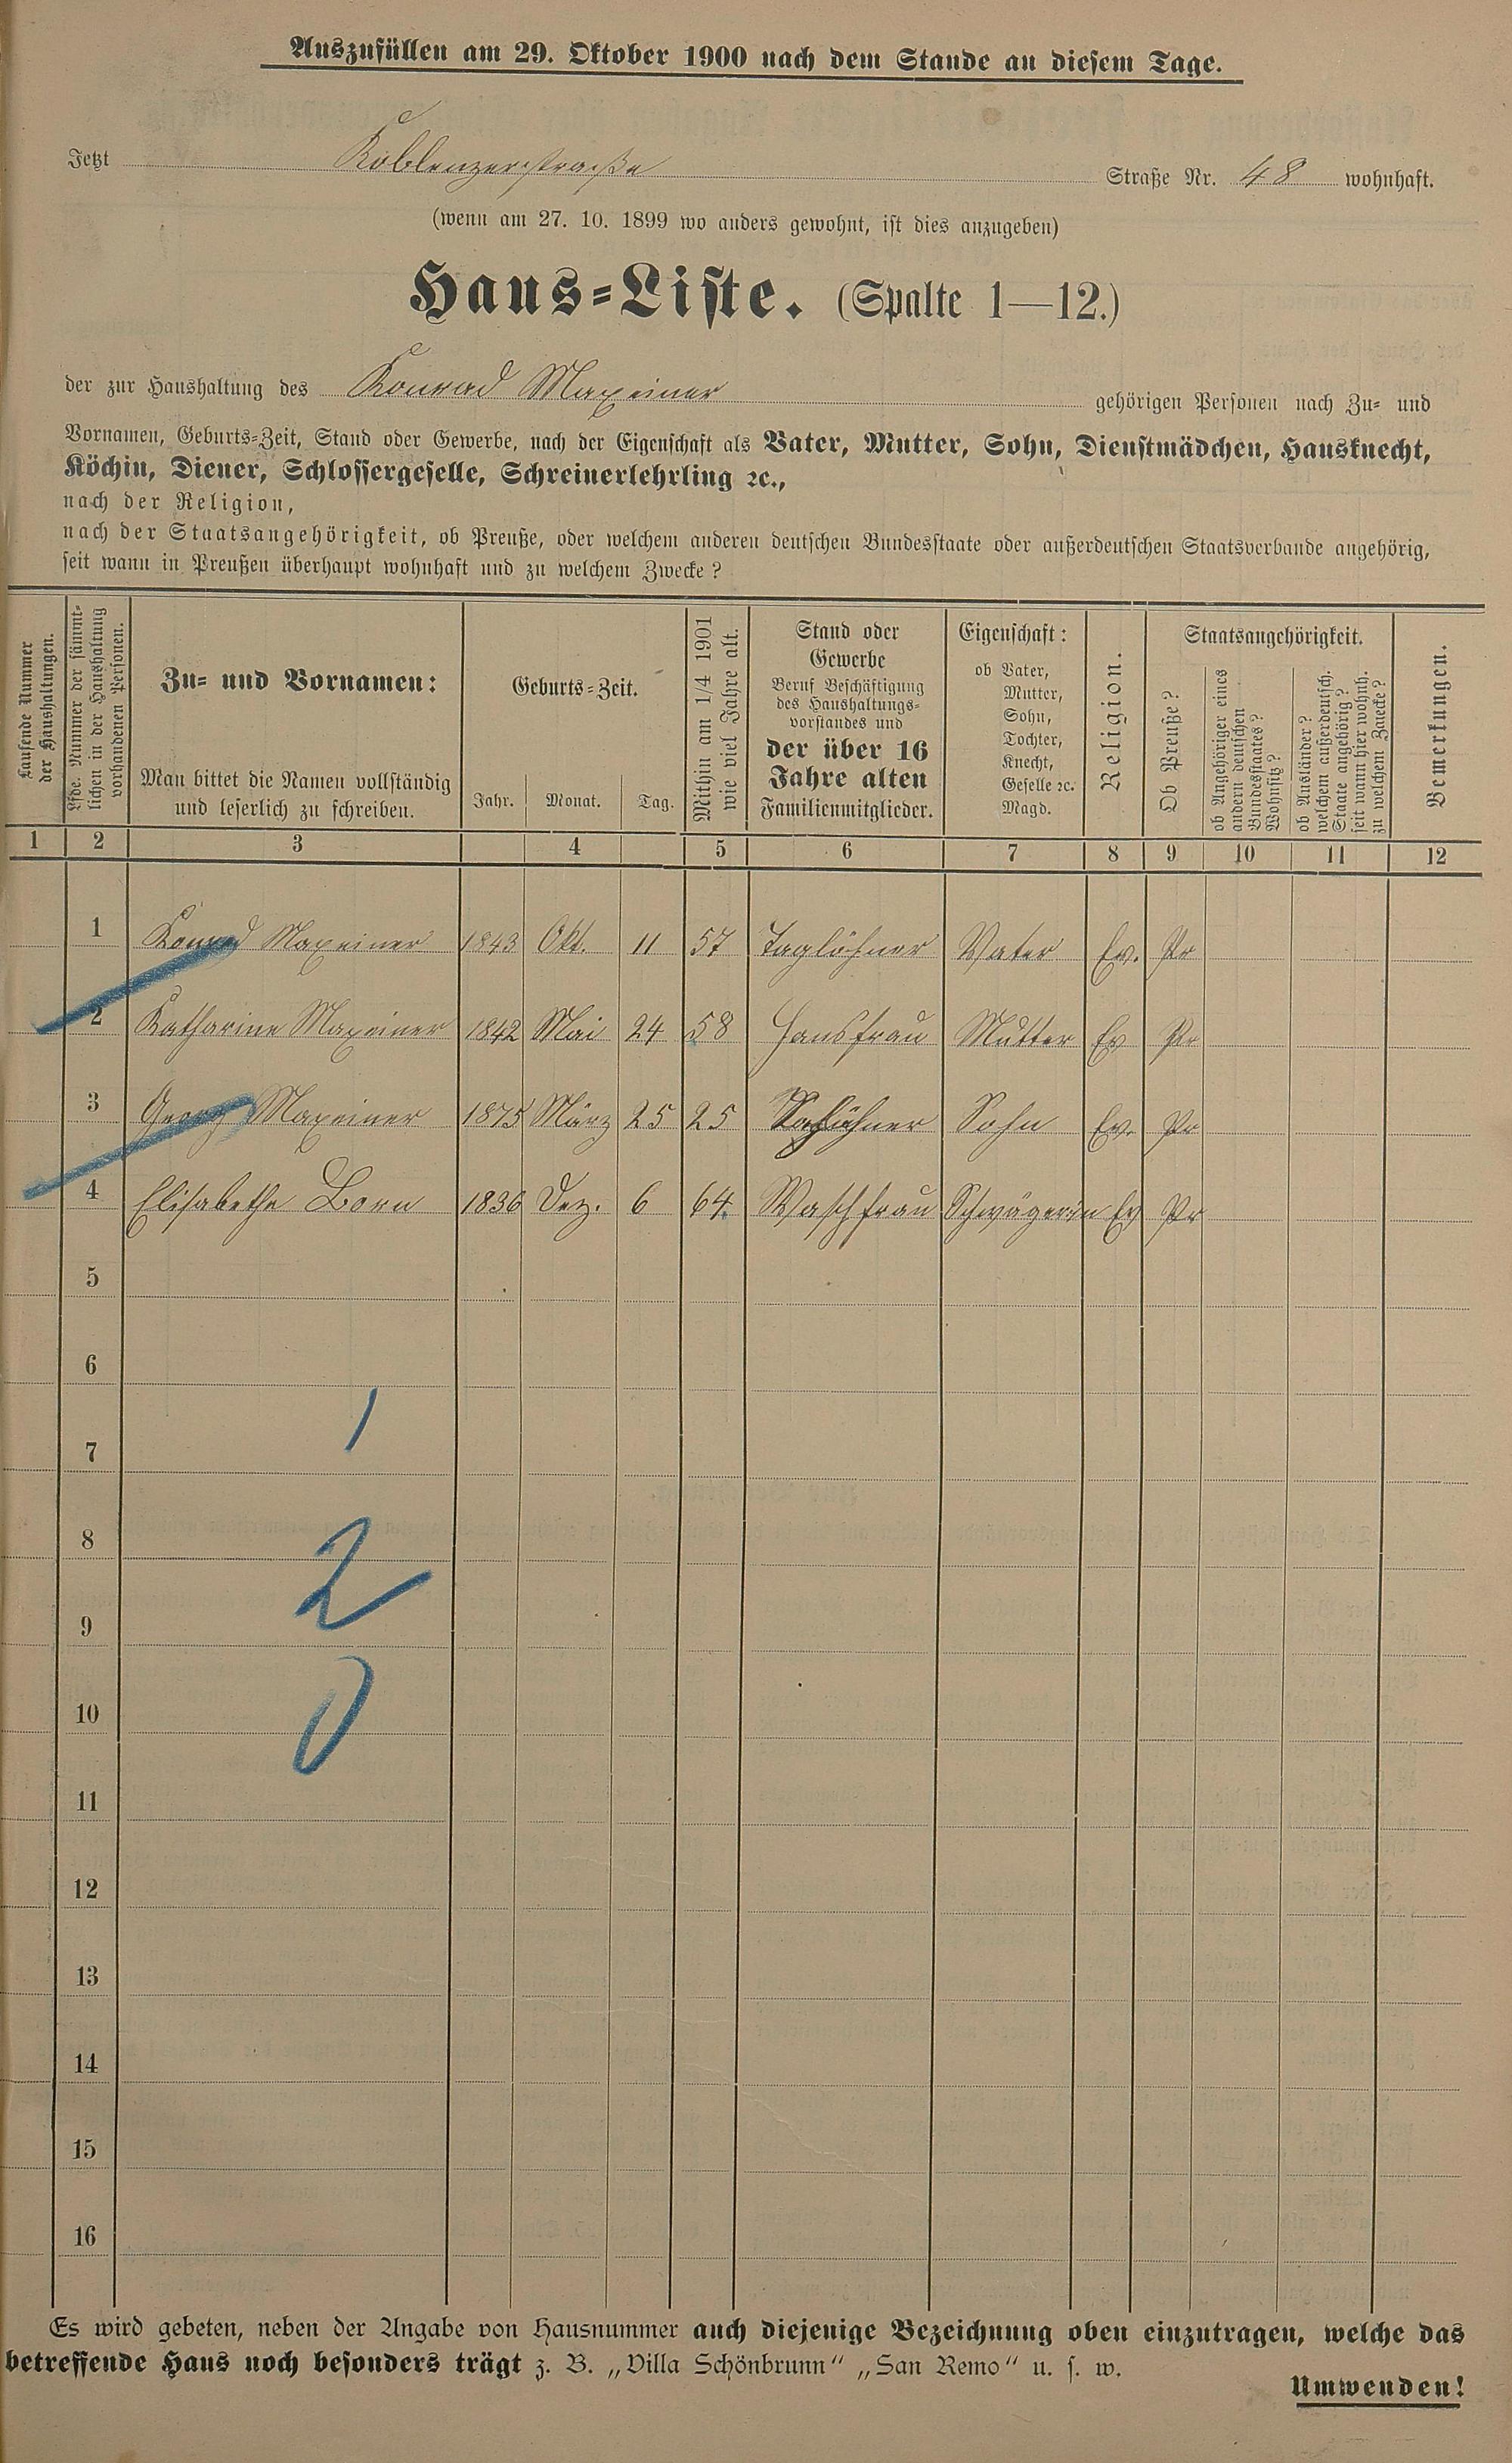 Auszufüllen am 29. Oktober 1900 nach dem Stande an diesem Tage.
Jetzt Koblenzerstraße Straße Nr. 48 wohnhaft.
(wenn am 27. 10. 1899 wo anders gewohnt, ist dies anzugeben)
Haus-Liste. (Spalte 1—12.)
der zur Haushaltung des Konrad Maxeiner gehörigen Personen nach Zu- und
Vornamen, Geburts-Zeit, Stand oder Gewerbe, nach der Eigenschaft als Vater, Mutter, Sohn, Dienstmädchen, Hausknecht,
Köchin, Diener, Schlossergeselle, Schreinerlehrling ꝛc.,
nach der Religion,
nach der Staatsangehörigkeit, ob Preuße, oder welchem anderen deutschen Bundesstaate oder außerdeutschen Staatsverbande angehörig,
seit wann in Preußen überhaupt wohnhaft und zu welchem Zwecke?
Laufende Nummer
der Haushaltungen.
Lfde. Nummer der sämmt-
lichen in der Haushaltung
vorhandenen Personen.
Zu- und Vornamen:
Man bittet die Namen vollständig
und leserlich zu schreiben.
Geburts-Zeit.
Jahr. Monat. Tag.
Mithin am 1/4 1901
wie viel Jahre alt.
Stand oder
Gewerbe
Beruf Beschäftigung
des Haushaltungs-
vorstandes und
der über 16
Jahre alten
Familienmitglieder.
Eigenschaft:
ob Vater,
Mutter,
Sohn,
Tochter,
Knecht,
Geselle ꝛc.
Magd.
Religion.
Staatsangehörigkeit.
Ob Preuße?
ob Angehöriger eines
andern deutschen
Bundesstaates?
Wohnsitz?
ob Ausländer?
welchem außerdeutsch.
Staate angehörig?
seit wann hier wohnh.
zu welchem Zwecke?
Bemerkungen.
1 2 3 4 5 6 7 8 9 10 11 12
1 Konrad Maxeiner 1843 Okt. 11 57 Taglöhner Vater Ev. Pr
2 Katharine Maxeiner 1842 Mai 24 58 Hausfrau Mutter Ev Pr
3 Georg Maxeiner 1875 März 25 25 Sohn Ev. Pr
4 Elisabethe Born 1836 Dez. 6 64. Waschfrau Schwägerin Ev Pr
5
6
1
7
8
2
9
10
0
11
12
13
14
15
16
Es wird gebeten, neben der Angabe von Hausnummer auch diejenige Bezeichnung oben einzutragen, welche das
betreffende Haus noch besonders trägt z. B. „Villa Schönbrunn“ „San Remo“ u. s. w.
Umwenden!